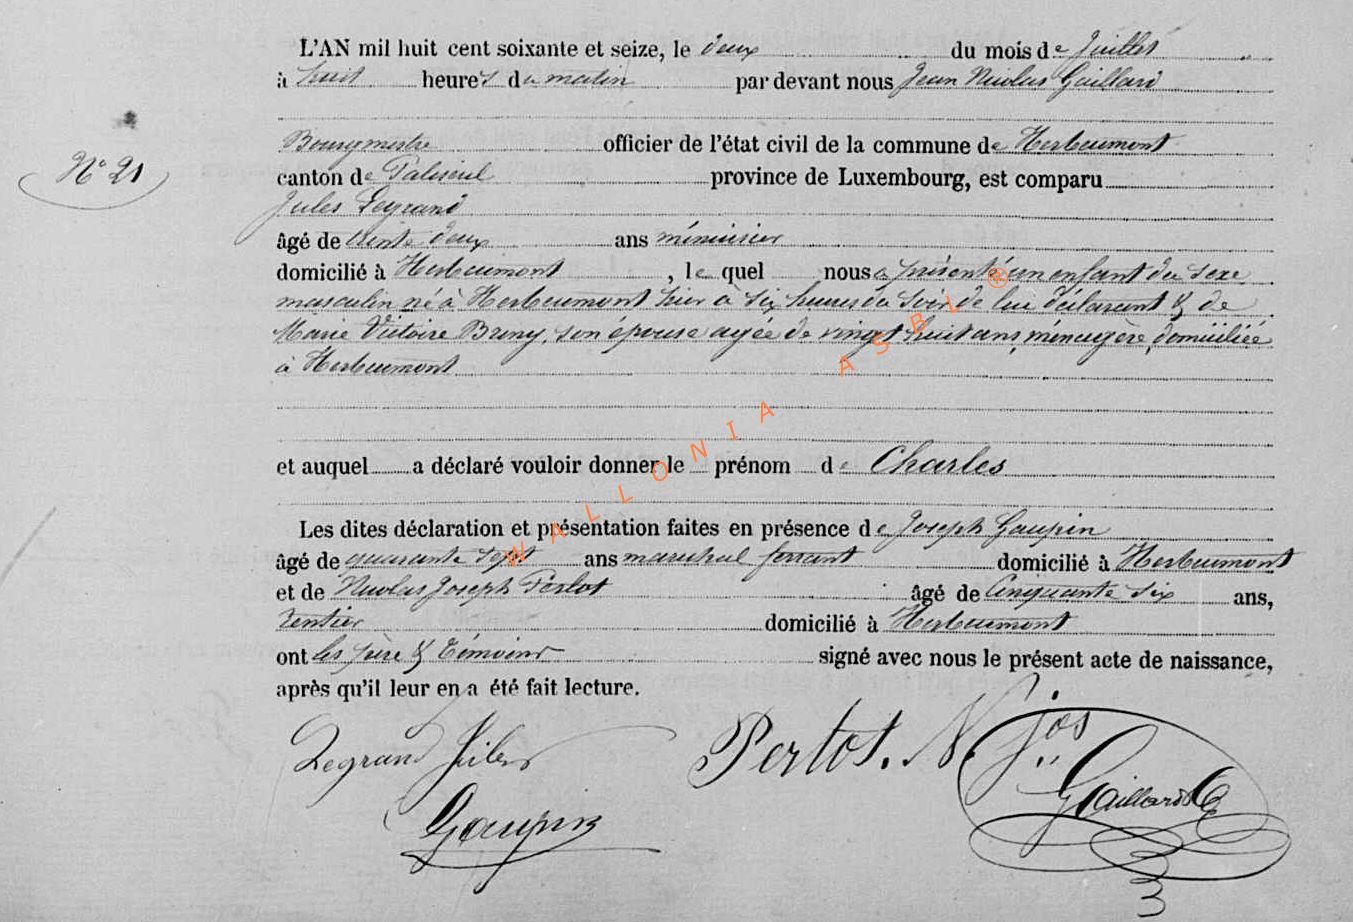 L'AN mil huit cent soixante et seize, le deux du mois de Juillet
à huit heures du matin par devant nous Jean Nicolas Gaillard
Bourgmestre officier de l'état civil de la commune de Herbeumont
N° 21
canton de Paliseul province de Luxembourg, est comparu
Jules Legrand
âgé de trente deux ans ménuisier
domicilié à Herbeumont, le quel nous a présenté un enfant du sexe
masculin né à Herbeumont hier à six heures du soir de lui déclarant & de
Marie Victoire Bruny, son épouse agée de vingt huit ans, ménagère, domiciliée
à Herbeumont
et auquel a déclaré vouloir donner le prénom de Charles
Les dites déclaration et présentation faites en présence de Joseph Gaupin
âgé de quarante sept ans maréchal ferrant domicilié à Herbeumont
et de Nicolas Joseph Perlot âgé de cinquante six ans,
rentier domicilié à Herbeumont
ont les père & témoins signé avec nous le présent acte de naissance,
après qu'il leur en a été fait lecture.
Legrand Jules Pertot. N. Jos
Gaillard
Gaupin
WALLONIA ASBL ®